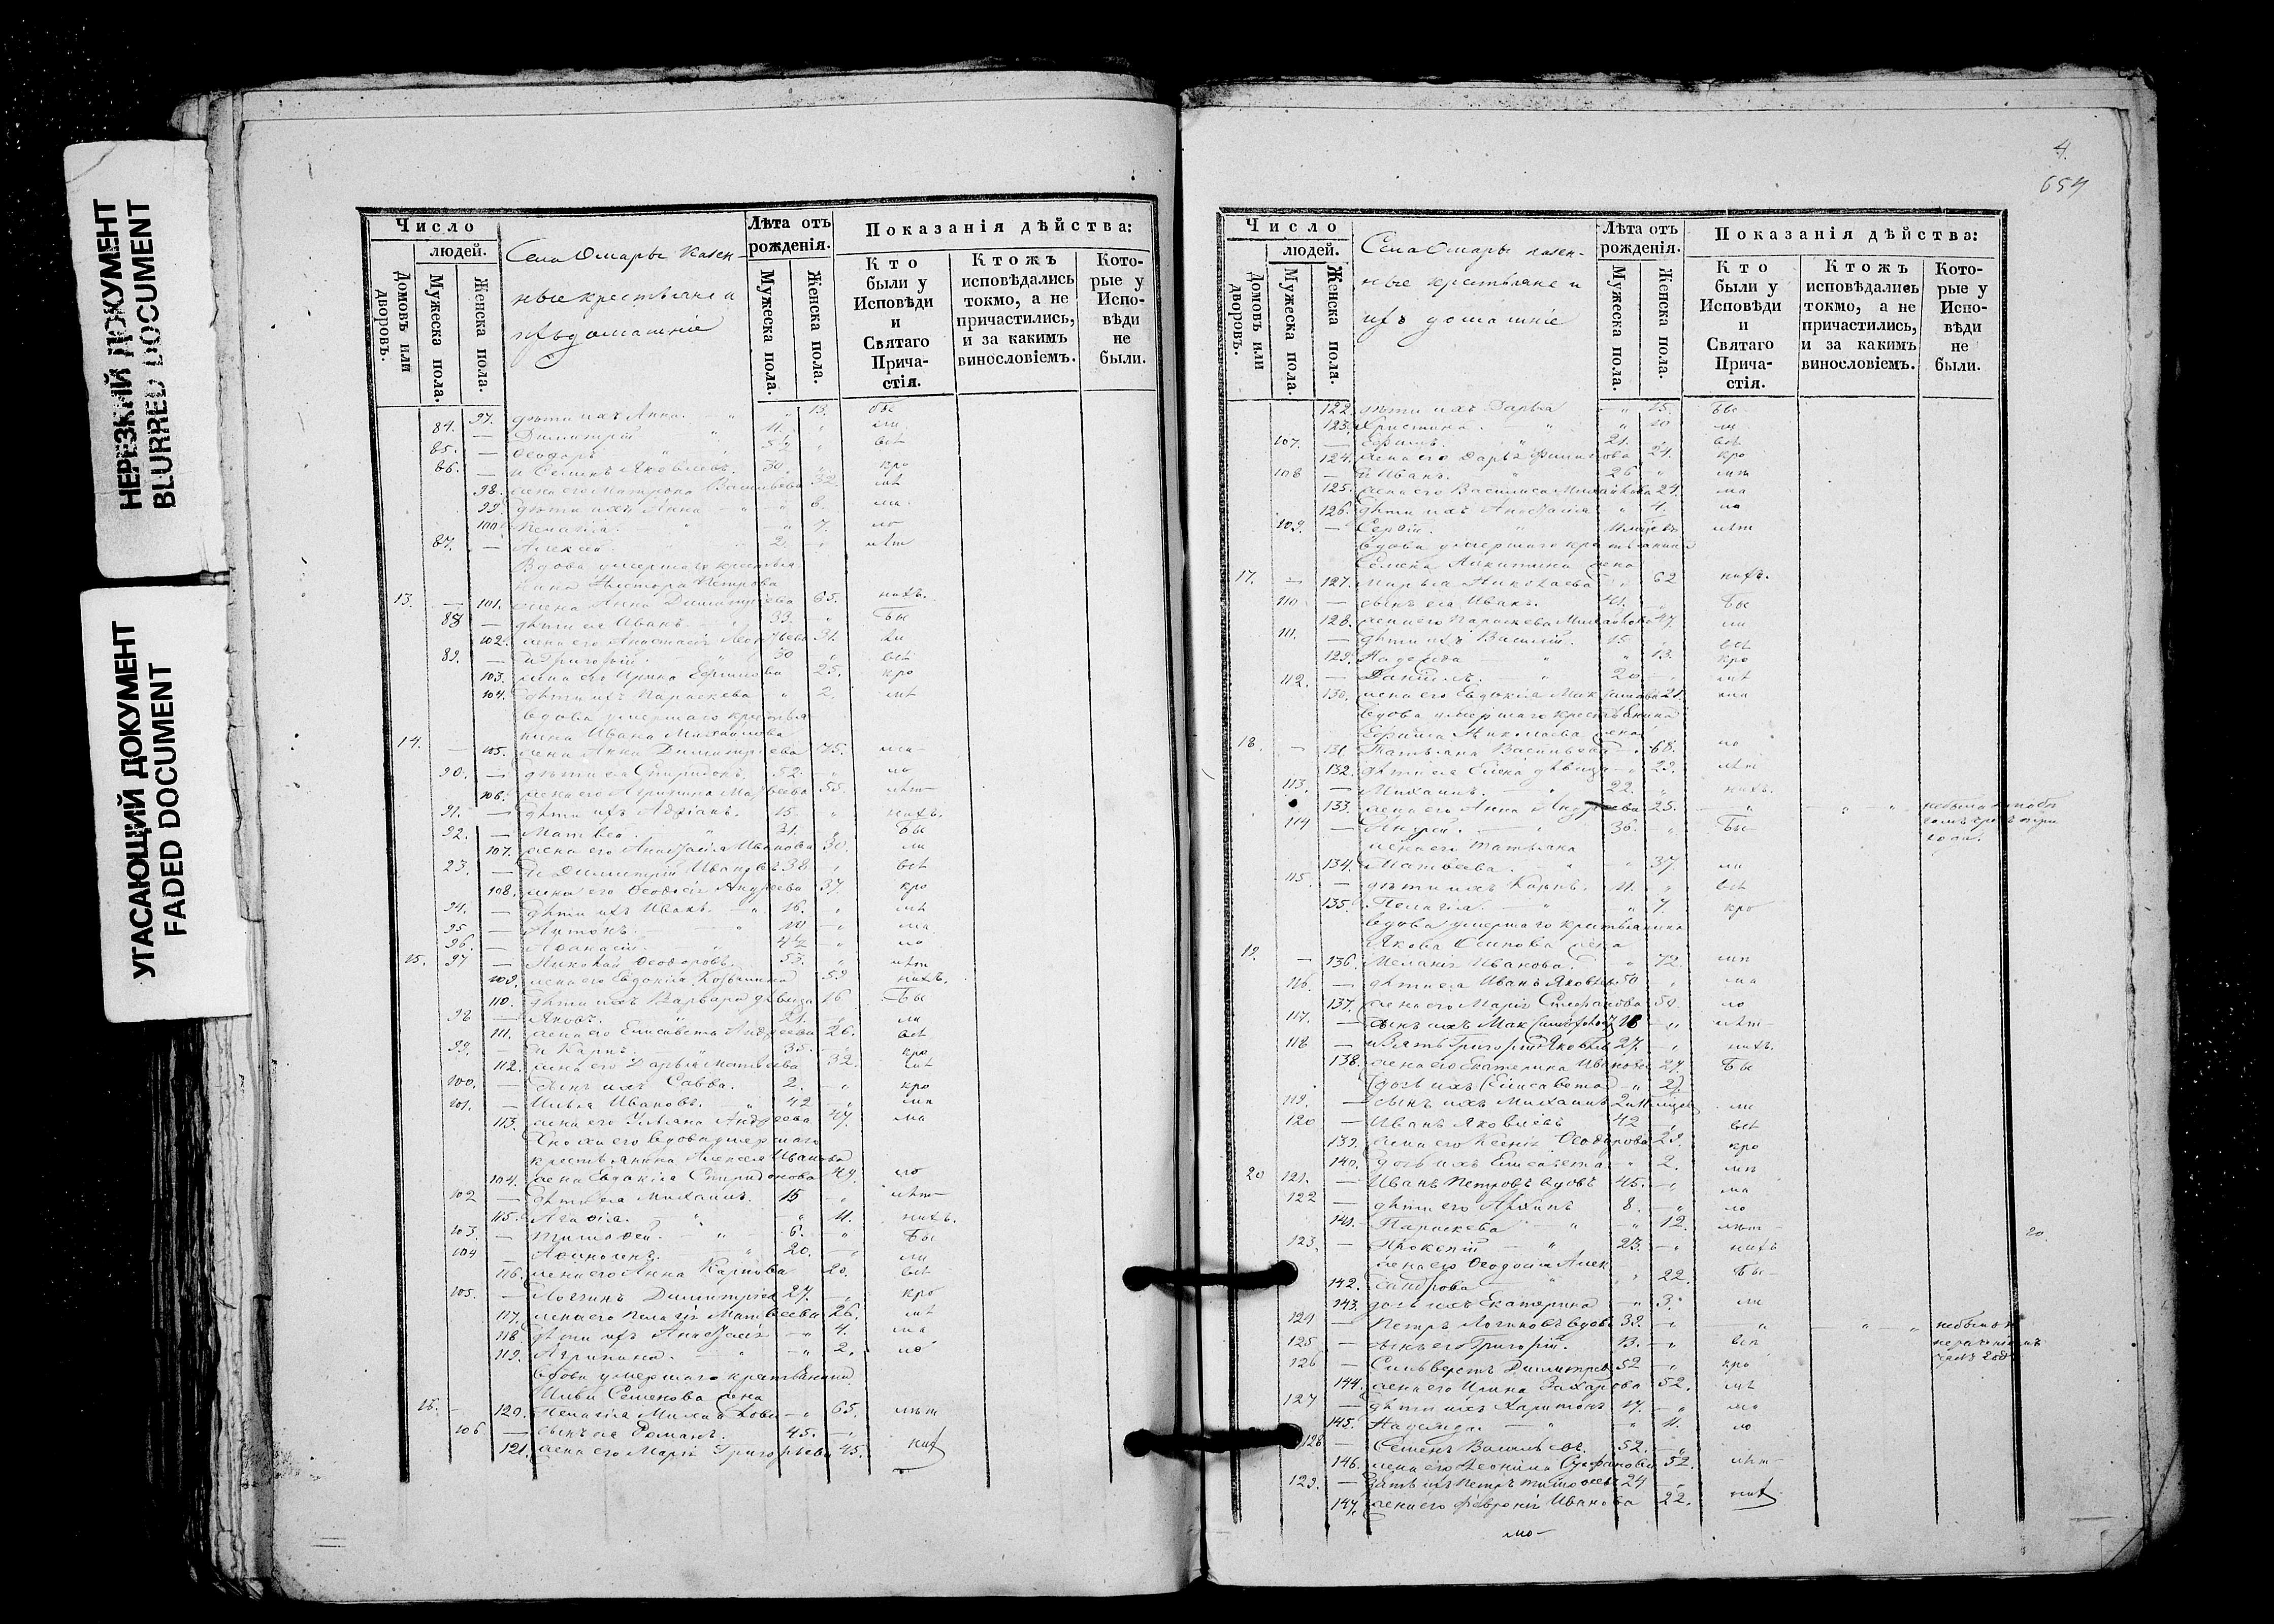 НЕРЕЗКИЙ ДОКУМЕНТ
BLURRED DOCUMENT
УГАСАЮЩИЙ ДОКУМЕНТ
FADED DOCUMENT
Число
людей.
Домовъ или дворовъ.
Мужеска пола.
Женска пола.
Села Омары казен-
ные крестьяне и
ихъ домашніе
Лѣта отъ рожденія.
Мужеска пола.
Женска пола.
Показанія дѣйства:
Кто были у Исповѣди и Святаго Прича-стія.
Ктожъ исповѣдались токмо, а не причастились, и за какимъ винословіемъ.
Кото-рые у Испо-вѣди не были.
97. дѣти ихъ Анна. 13. бы
84. — Димитрій 11. ли
85. — Ѳеодоръ всѣ
86. — и Семенъ Яковлевъ. 30. кро
98. жена его Матрона Васильева 32. мѣ
99. дѣти ихъ Анна 8.
100. Пелагія. 7. ло
87. — Алексѣй 2. лѣт
Вдова умершаго крестья
нина Нестора Петрова
13. — 101. жена Анна Димитріева 65. нихъ.
88 — дѣти ея Иванъ. 33. Бы
102. жена его Анастасія 31. ли
89. — и Григорій. 30 всѣ
103. жена его Ирина Ефимова 25. кро
104. дѣти ихъ Параскева 2. мѣ
вдова умершаго крестья
нина Ивана Михайлова
14. — 105. жена Анна Димитріева 75. ма
90. — дѣти ея Спиридонъ. 52. ло
106. жена его Агрипина Матвѣева 55. лѣт
91. — дѣти ихъ Адріанъ. 15. нихъ.
92. — Матвей. 31. Бы
107. жена его Анастасія Иванова 30. ли
93. — и Димитрій Ивановъ 38 всѣ
108. жена его Ѳеодосія Андреева 37 кро
94. — дѣти ихъ Иванъ. 16. мѣ
95 — Антонъ. 10 ма
96. — Аѳанасій. 4½ ло
15. 97 — Николай Ѳеодоровъ. 53. лѣт
109. жена его Евдокія Козьмина 59 нихъ.
110. дѣти ихъ Варвара дѣвица 16 Бы
98 — Яковъ. 21. ли
111. жена его Елисавета Андреева 26. всѣ
99. — и Карпъ. 35. кро
112. жена его Дарья Матвѣева 32. мѣ
100. — сынъ ихъ Савва. 2. кро
101. — Илья Ивановъ. 42
113. жена его Ульяна Андреева 47. ма
Сноха его вдова умершаго
крестьянина Алексея Иванова
104. жена Евдокія Спиридонова 49. ло
102 — дѣти ея Михаилъ. 15 лѣт
115. Агафія. 11. нихъ.
103. — Тимофей. 6. Бы
104 — 20. ли
116. жена его Анна Карпова 20. всѣ
105. — Логинъ Димитріевъ 27. кро
117. жена его Пелагія Матвѣева 26. мѣ
118. дѣти ихъ Анастасія 4. ма
119. Агрипина. 2. ло
вдова умершаго крестьянина
Ильи Семенова жена
16. — 120. Пелагія Михайлова 65. лѣт
106 — сынъ ея Романъ. 45.
121. жена его Марія Григорьева 45. них
4.
654
Число
людей.
Домовъ или дворовъ.
Мужеска пола.
Женска пола.
Села Омары казен-
ные крестьяне и
ихъ домашніе
Лѣта отъ рожденія.
Мужеска пола.
Женска пола.
Показанія дѣйства:
Кто были у Исповѣди и Святаго Прича-стія.
Ктожъ исповѣдались токмо, а не причастились, и за какимъ винословіемъ.
Кото-рые у Испо-вѣди не были.
122. дѣти ихъ Дарья 15. Бы
123. Христина. 10 ли
107. — Ефимъ. 21. всѣ
124. жена его Дарья Филипова 24. кро
108 — и Иванъ. 26
125. жена его Василиса Михайлова 24. ма
126. дѣти ихъ Анастасія 4. ло
109. — Сергій. лѣт
вдова умершаго крестьянина
Семена Никитина жена
17. — 127. Марья Николаева 62 нихъ.
110 — сынъ ея Иванъ. 41. Бы
128. жена его Параскева Михайлова 47. ли
111. — дѣти ихъ Василій. 15. всѣ
129. Надежда 13. кро
112. — Даніилъ. 20. мѣ
130. жена его Евдокія Максимова 21. ма
вдова умершаго крестьянина
Ефима Николаева жена
18. — 131. Татьяна Васильева 68. ло
132. дѣти ея Елена дѣвица 23. лѣт
113. — Михаилъ. 22. нихъ.
133. жена его Анна Андреева 25.
114 — Андрей. 36. Бы
жена его Татьяна
134. Матвѣева. 37. ли
115. — дѣти ихъ Карпъ. 11. всѣ
135. Пелагія. 7. кро
вдова умершаго крестьянина
Якова Осипова жена
19. — 136. Меланія Иванова. 72.
116. — дѣти ея Иванъ Яковлевъ 50 ма
137. жена его Марія Стефанова 50. ло
117. — сынъ ихъ 18 лѣт
118 — зять Григорій Яковлевъ 27. нихъ.
138. жена его Екатерина Иванова 27. Бы
(дочь ихъ Елисавета 2)
119. — сынъ ихъ Михаилъ ли
120 — Иванъ Яковлевъ 42 всѣ
139. жена его Ксенія Ѳеодорова 29. кро
140. дочь ихъ Елисавета 2. мѣ
20 121. — Иванъ Петровъ вдовъ 45. ма
122 — дѣти его Архипъ 8. ло
141. Параскева 12. лѣт
123. — Прокопій 23. нихъ
жена его Ѳеодосія Алек
142. сандрова 22. Бы
143. дочь ихъ Екатерина 3. ли
20.
124 — Петръ Логиновъ вдовъ 39.
125 — сынъ его Григорій. 13. всѣ
126 — Сильверстъ Димитріевъ 52 кро
144. жена его Ирина Захарова 52. мѣ
127 — дѣти ихъ Харитонъ 17. ма
145. Надежда. 11. ло
128 — Семенъ Васильевъ. 52.
146. жена его Стефанова 52. лѣт
129. — Зять ихъ Петръ Тимофеевъ 24
147. жена его Февронія Иванова 22. них
мо-